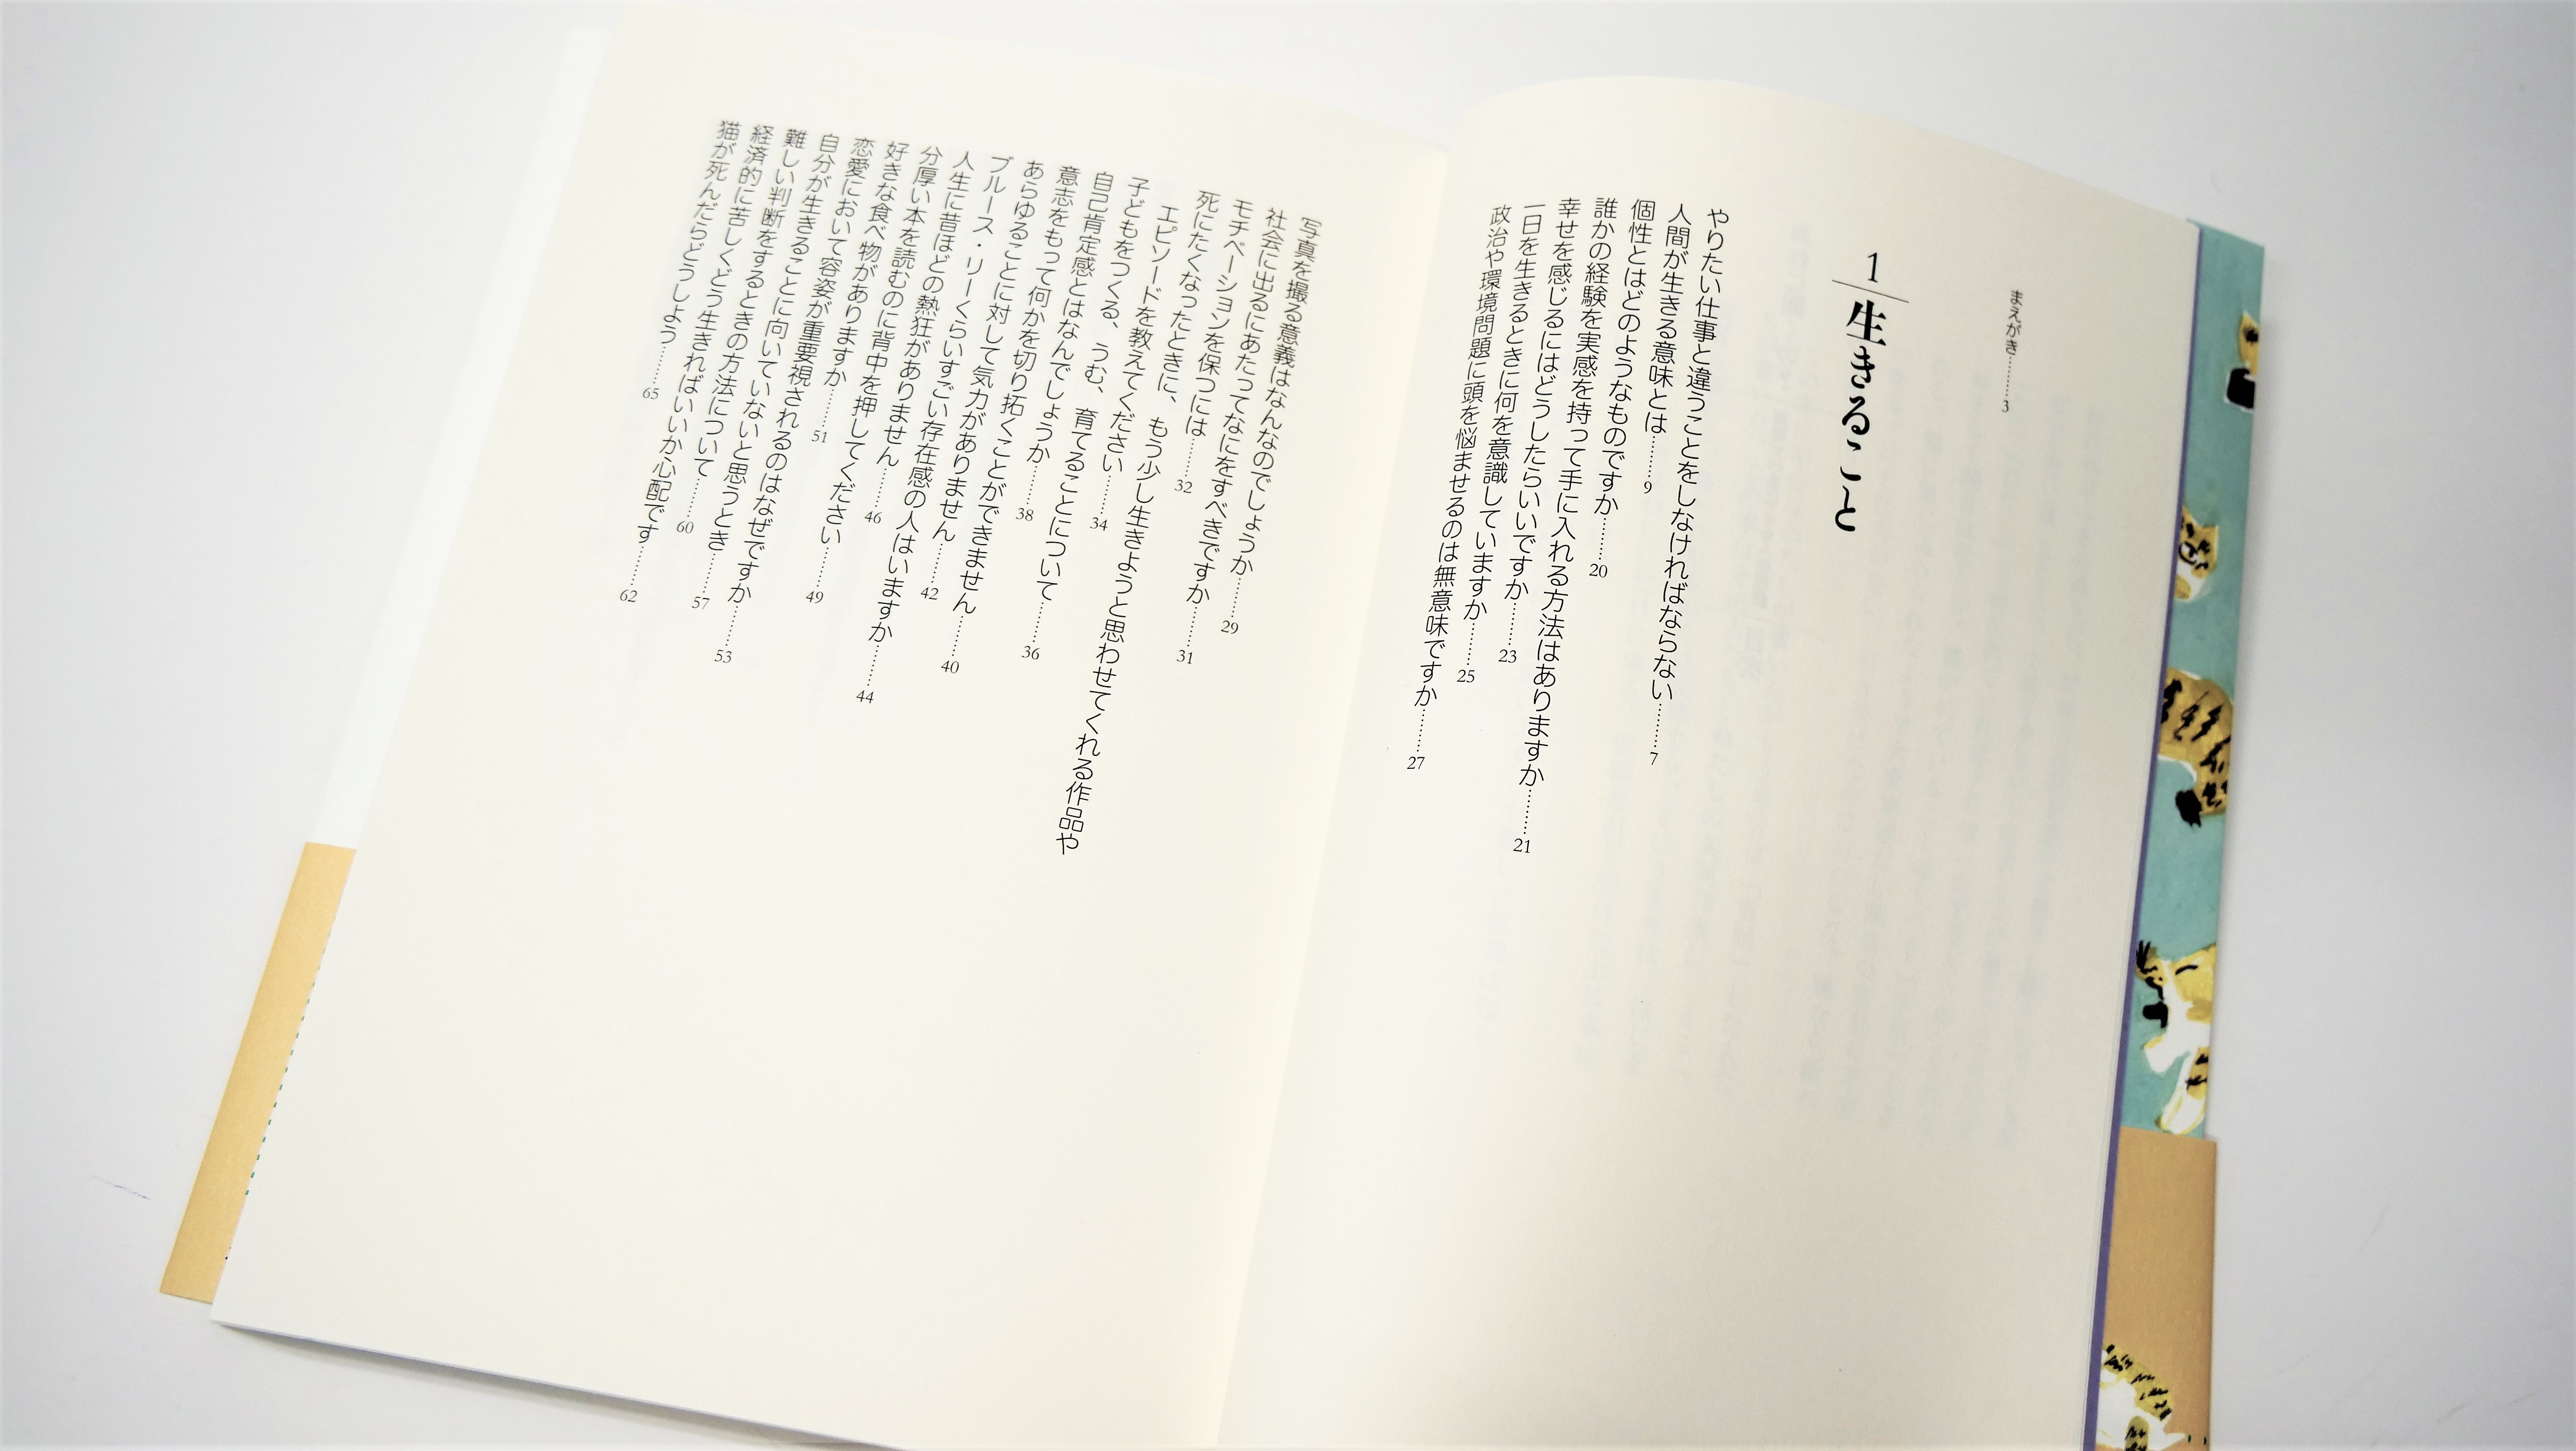 まえがき………3
1
生きること
やりたい仕事と違うことをしなければならない………7
人間が生きる意味とは………9
個性とはどのようなものですか………20
誰かの経験を実感を持って手に入れる方法はありますか………21
幸せを感じるにはどうしたらいいですか………23
一日を生きるときに何を意識していますか………25
政治や環境問題に頭を悩ませるのは無意味ですか………27
写真を撮る意義はなんなのでしょうか………29
社会に出るにあたってなにをすべきですか………31
モチベーションを保つには………32
死にたくなったときに、もう少し生きようと思わせてくれる作品や
エピソードを教えてください………34
子どもをつくる、うむ、育てることについて………36
自己肯定感とはなんでしょうか………38
意志をもって何かを切り拓くことができません………40
あらゆることに対して気力がありません………42
ブルース・リーくらいすごい存在感の人はいますか………44
人生に昔ほどの熱狂がありません………46
分厚い本を読むのに背中を押してください………49
好きな食べ物がありますか………51
恋愛において容姿が重要視されるのはなぜですか………53
自分が生きることに向いていないと思うとき………57
難しい判断をするときの方法について………60
経済的に苦しくどう生きればいいか心配です………62
猫が死んだらどうしよう………65